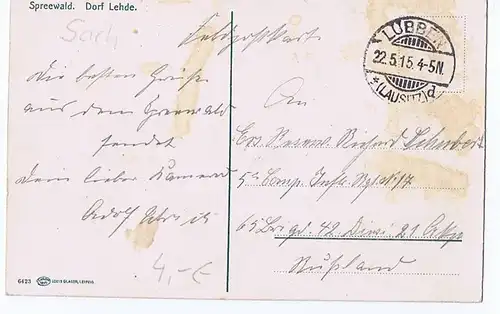 Spreewald. Dorf Lehde.
Feldpostkarte
LÜBBEN
22.5.15.4-5N.
* (LAUSITZ) d
Die besten Grüße
aus dem Spreewald
sendet
Dein lieber Kamerad
Adolf
An
Ers. Reserv. Richard Schubert
5te Comp. Inftr. Rgt. № 17
65 Brigd. 42 Divi. 21 A.Kp.
Rußland
4,- €
6423
LOUIS GLASER, LEIPZIG.